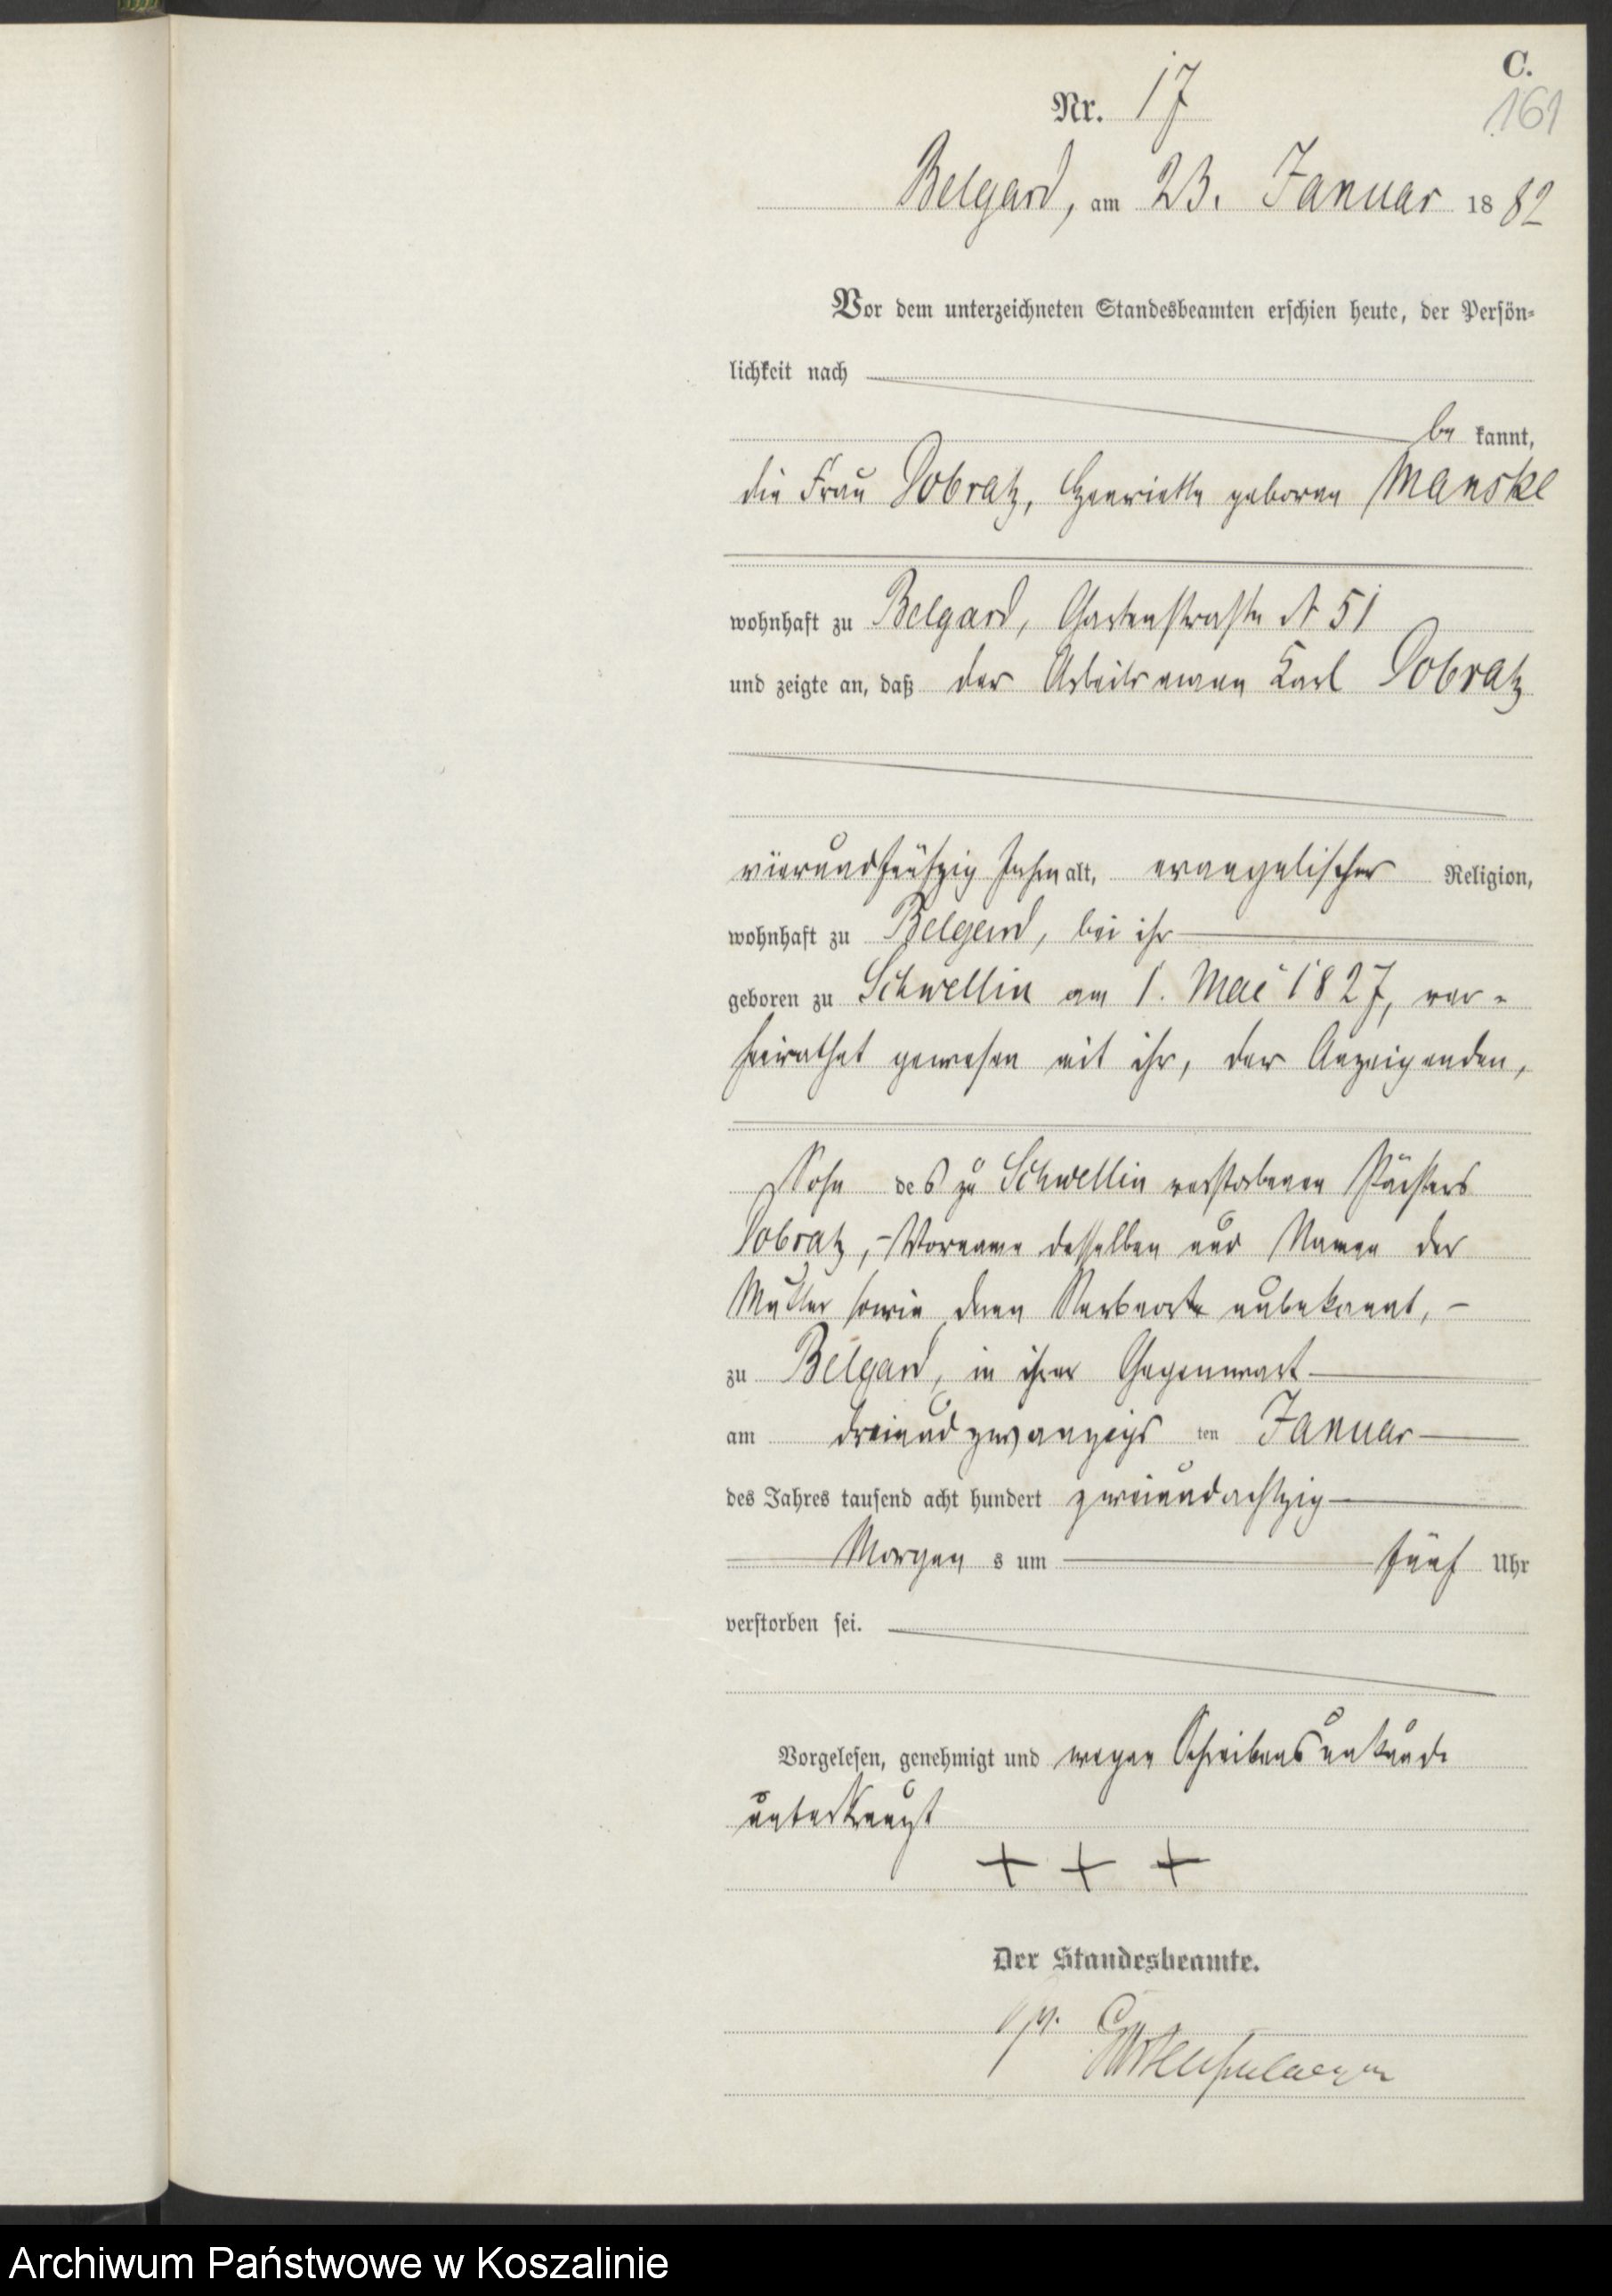 C.
Nr. 17
161
Belgard, am 23. Januar 1882
Vor dem unterzeichneten Standesbeamten erschien heute, der Persön-
lichkeit nach
be kannt,
die Frau Dobratz, Henriette geboren Manske
wohnhaft zu Belgard, Gartenstraße N 51
und zeigte an, daß der Arbeitsmann Karl Dobratz
vierundfünfzig Jahre alt, evangelischer Religion,
wohnhaft zu Belgard, bei ihr
geboren zu Schwellin am 1. Mai 1827, ver-
heirathet gewesen mit ihr, der Anzeigenden,
Sohn des zu Schwellin verstorbenen Pächters
Dobratz, – Vorname desselben und Namen der
Mutter sowie deren Sterbeorte unbekannt, –
zu Belgard, in ihrer Gegenwart
am dreiundzwanzigsten Januar
des Jahres tausend acht hundert zweiundachtzig
Morgens um fünf Uhr
verstorben sei.
Vorgelesen, genehmigt und wegen Schreibensunkunde
unterkreuzt
+ + +
Der Standesbeamte.
Archiwum Państwowe w Koszalinie